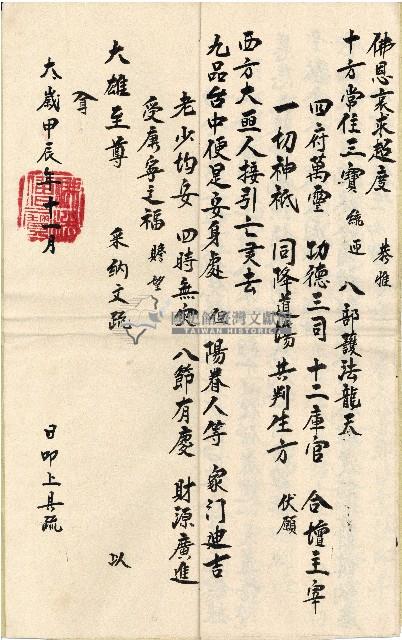 佛恩哀求超度 恭惟
十方常住三寶 統迎 八部護法龍天
四府萬靈 功德三司 十二庫官 合壇主宰
一切神祇 同降道場 共判生方 伏願
西方大聖人接引亡灵去
九品台中便是安身處 但陽眷人等 家门迪吉
老少均安 四時無灾 八節有慶 財源廣進
受康寧之福 瞻望
大雄至尊 采納文疏 以
聞
太歲甲辰年十一月 日叩上具疏
臺灣文獻館
TAIWAN HISTORICA